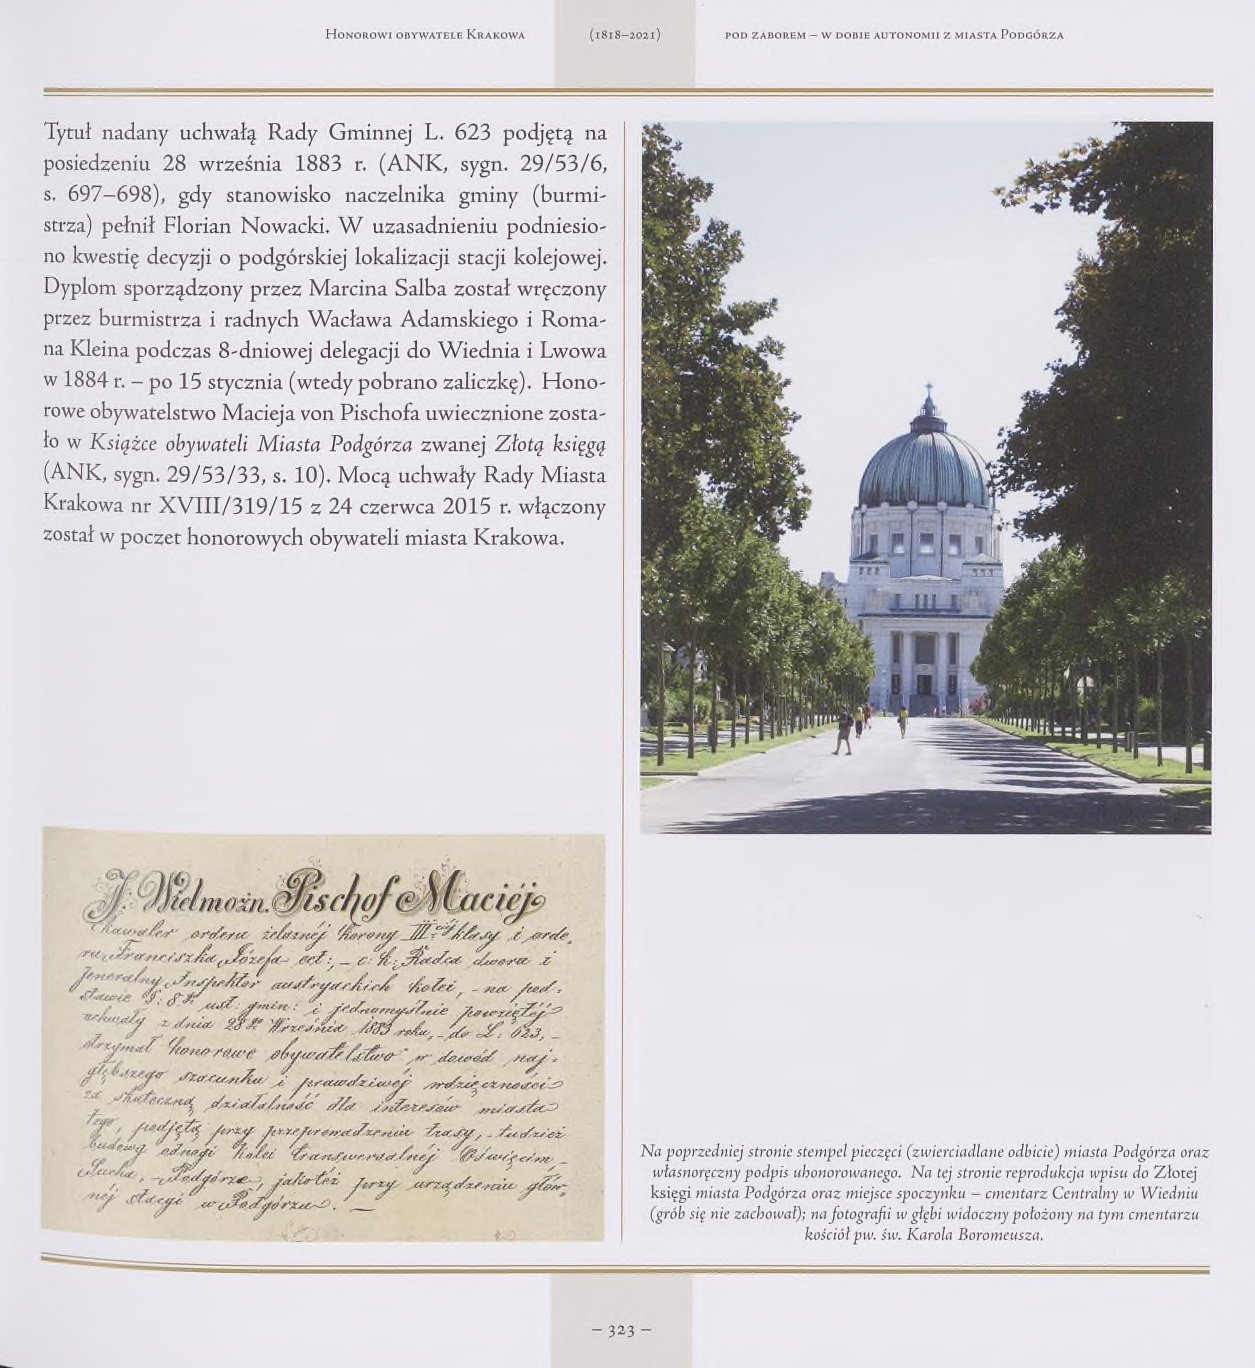 Honorowi obywatele Krakowa (1818–2021) pod zaborem – w dobie autonomii z miasta Podgórza
Tytuł nadany uchwałą Rady Gminnej L. 623 podjętą na
posiedzeniu 28 września 1883 r. (ANK, sygn. 29/53/6,
s. 697–698), gdy stanowisko naczelnika gminy (burmi-
strza) pełnił Florian Nowacki. W uzasadnieniu podniesio-
no kwestię decyzji o podgórskiej lokalizacji stacji kolejowej.
Dyplom sporządzony przez Marcina Salba został wręczony
przez burmistrza i radnych Wacława Adamskiego i Roma-
na Kleina podczas 8-dniowej delegacji do Wiednia i Lwowa
w 1884 r. – po 15 stycznia (wtedy pobrano zaliczkę). Hono-
rowe obywatelstwo Macieja von Pischofa uwiecznione zosta-
ło w Książce obywateli Miasta Podgórza zwanej Złotą księgą
(ANK, sygn. 29/53/33, s. 10). Mocą uchwały Rady Miasta
Krakowa nr XVIII/319/15 z 24 czerwca 2015 r. włączony
został w poczet honorowych obywateli miasta Krakowa.
J. Wielmożn. Pischof Maciéj
Kawaler orderu żelaznéj Korony III klasy i orde,
ru Franciszka Józefa ect:, – c: k: Radca dworu i
Jeneralny Inspektor austryackich kolei, – na pod=
stawie §: 8 ust: gmin: i jednomyślnie powziętéj
uchwały z dnia 28 Września 1883 roku, – do L: 623, –
otrzymał honorowe obywatelstwo w dowód naj=
głębszego szacunku i prawdziwéj wdzięczności
za skuteczną działalność dla interesów miasta
tego, podjętą przy przeprowadzeniu trasy, – tudzież
budowy odnogi kolei transwersalnéj Oświęcim –
Sucha, – Podgórze, jakotéż przy urządzeniu głów,
néj stacyi w Podgórzu. –
Na poprzedniej stronie stempel pieczęci (zwierciadlane odbicie) miasta Podgórza oraz
własnoręczny podpis uhonorowanego. Na tej stronie reprodukcja wpisu do Złotej
księgi miasta Podgórza oraz miejsce spoczynku – cmentarz Centralny w Wiedniu
(grób się nie zachował); na fotografii w głębi widoczny położony na tym cmentarzu
kościół pw. św. Karola Boromeusza.
– 323 –